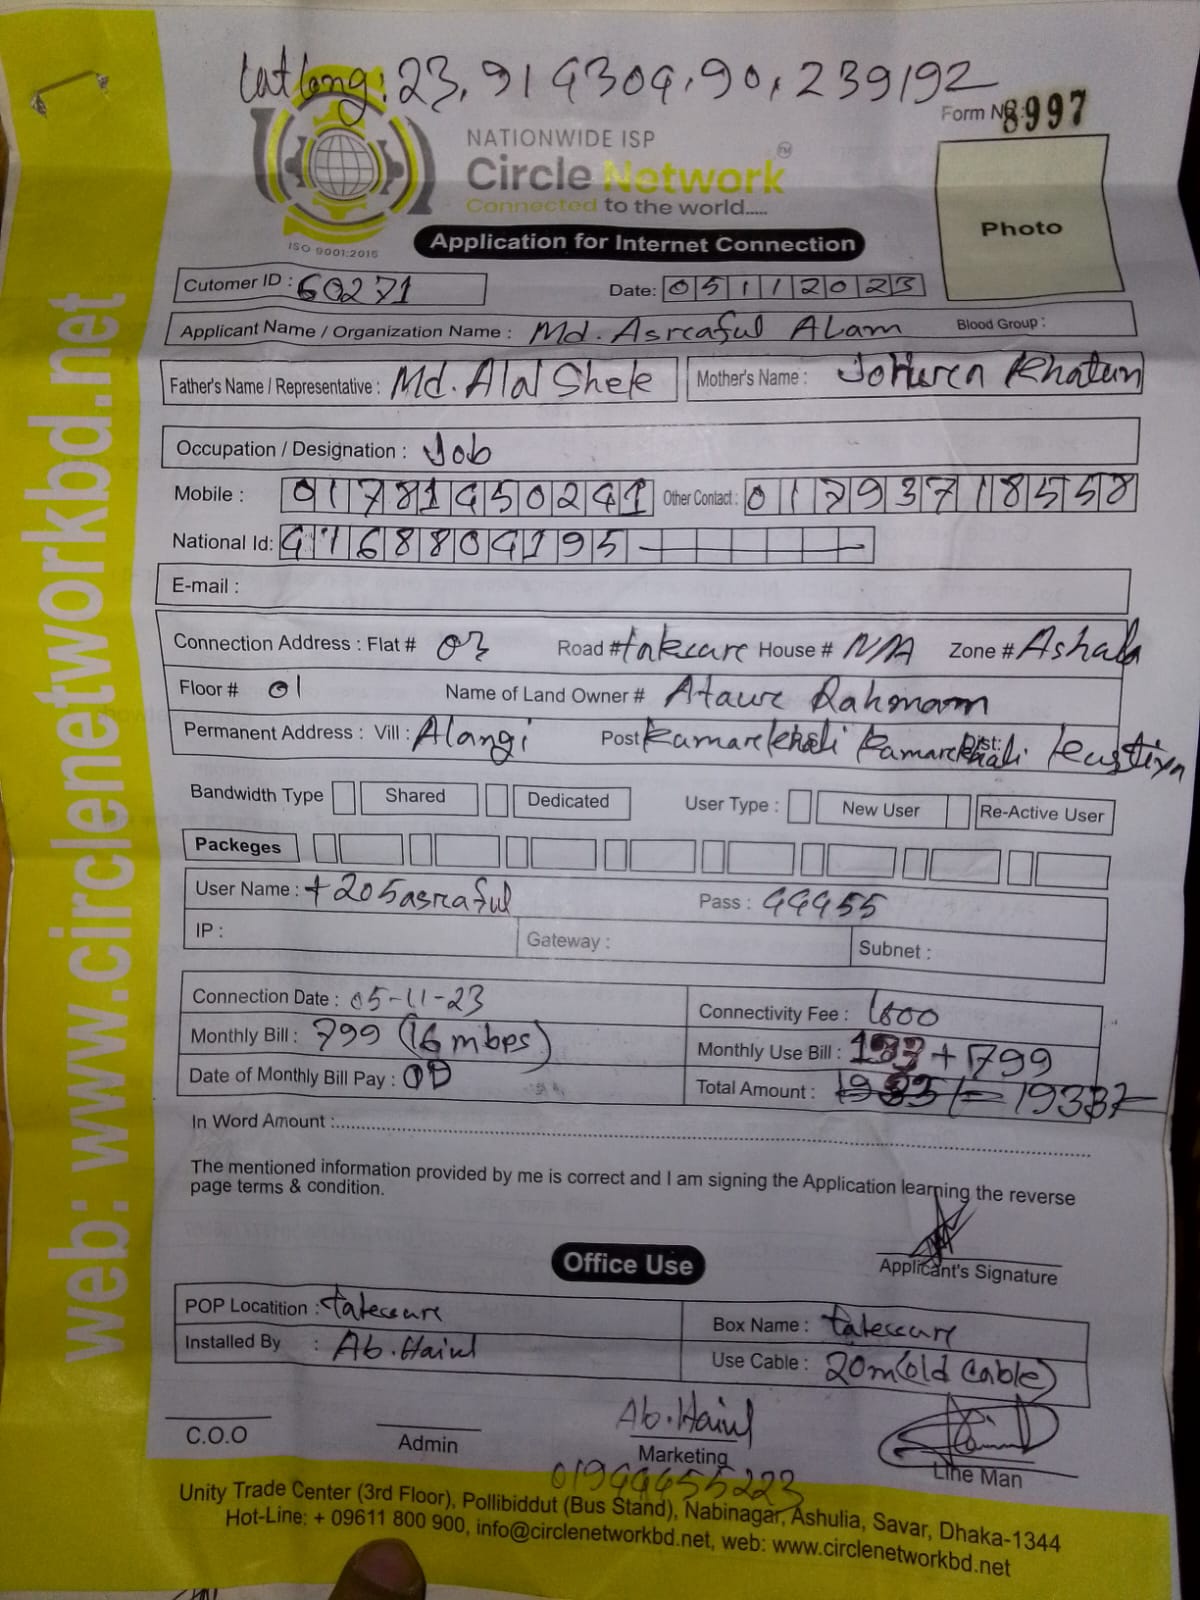 Lat long: 23.914304,90.239192
Form No: 8997
NATIONWIDE ISP
Circle Network TM
Connected to the world.....
ISO 9001:2015
Application for Internet Connection
Photo
Cutomer ID : 60271 Date: 05112023
Applicant Name / Organization Name : Md. Asreaful Alam Blood Group :
Father's Name / Representative : Md. Alal Shek Mother's Name : Khatun
Occupation / Designation : Job
Mobile : 01781450241 Other Contact : 01793718558
National Id: 4168804195
E-mail :
Connection Address : Flat # 03 Road # House # N/A Zone #
Floor # 01 Name of Land Owner # Ataur Rahmam
Permanent Address : Vill : Alangi Post Dist:
Bandwidth Type Shared Dedicated User Type : New User Re-Active User
Packeges
User Name : t205asreaful Pass : 44455
IP : Gateway : Subnet :
Connection Date : 05-11-23 Connectivity Fee : 1000
Monthly Bill : 799 (16 mbps) Monthly Use Bill : + 799
Date of Monthly Bill Pay : Total Amount :
In Word Amount :
The mentioned information provided by me is correct and I am signing the Application learning the reverse
page terms & condition.
Applicant's Signature
Office Use
POP Locatition : Box Name :
Installed By : Ab. Use Cable : 20m (old cable)
Ab.
C.O.O Admin Marketing Line Man
01944455223
Unity Trade Center (3rd Floor), Pollibiddut (Bus Stand), Nabinagar, Ashulia, Savar, Dhaka-1344
Hot-Line: + 09611 800 900, info@circlenetworkbd.net, web: www.circlenetworkbd.net
web: www.circlenetworkbd.net